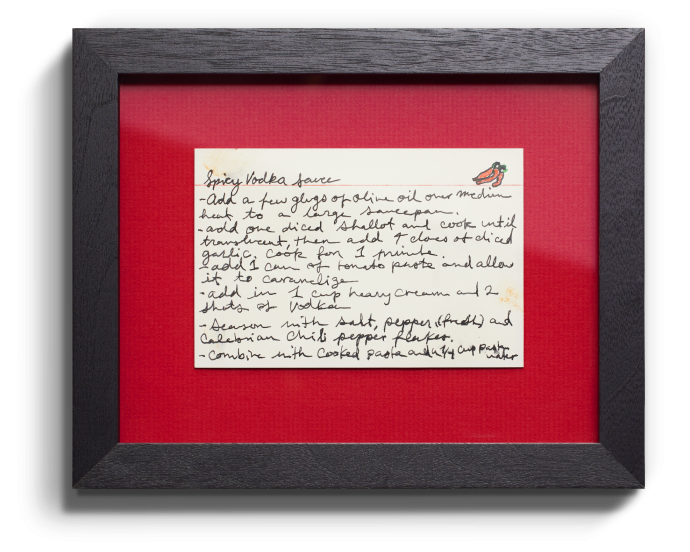 Spicy Vodka Sauce
-Add a few glugs of olive oil over medium
heat to a large saucepan.
-add one diced shallot and cook until
translucent, then add 4 cloves of diced
garlic. Cook for 1 minute.
-add 1 can of tomato paste and allow
it to caramelize
-add in 1 cup heavy cream and 2
shots of vodka
-Season with salt, pepper (fresh) and
Calabrian chili pepper flakes.
-Combine with cooked pasta and 1/4 cup pasta
water